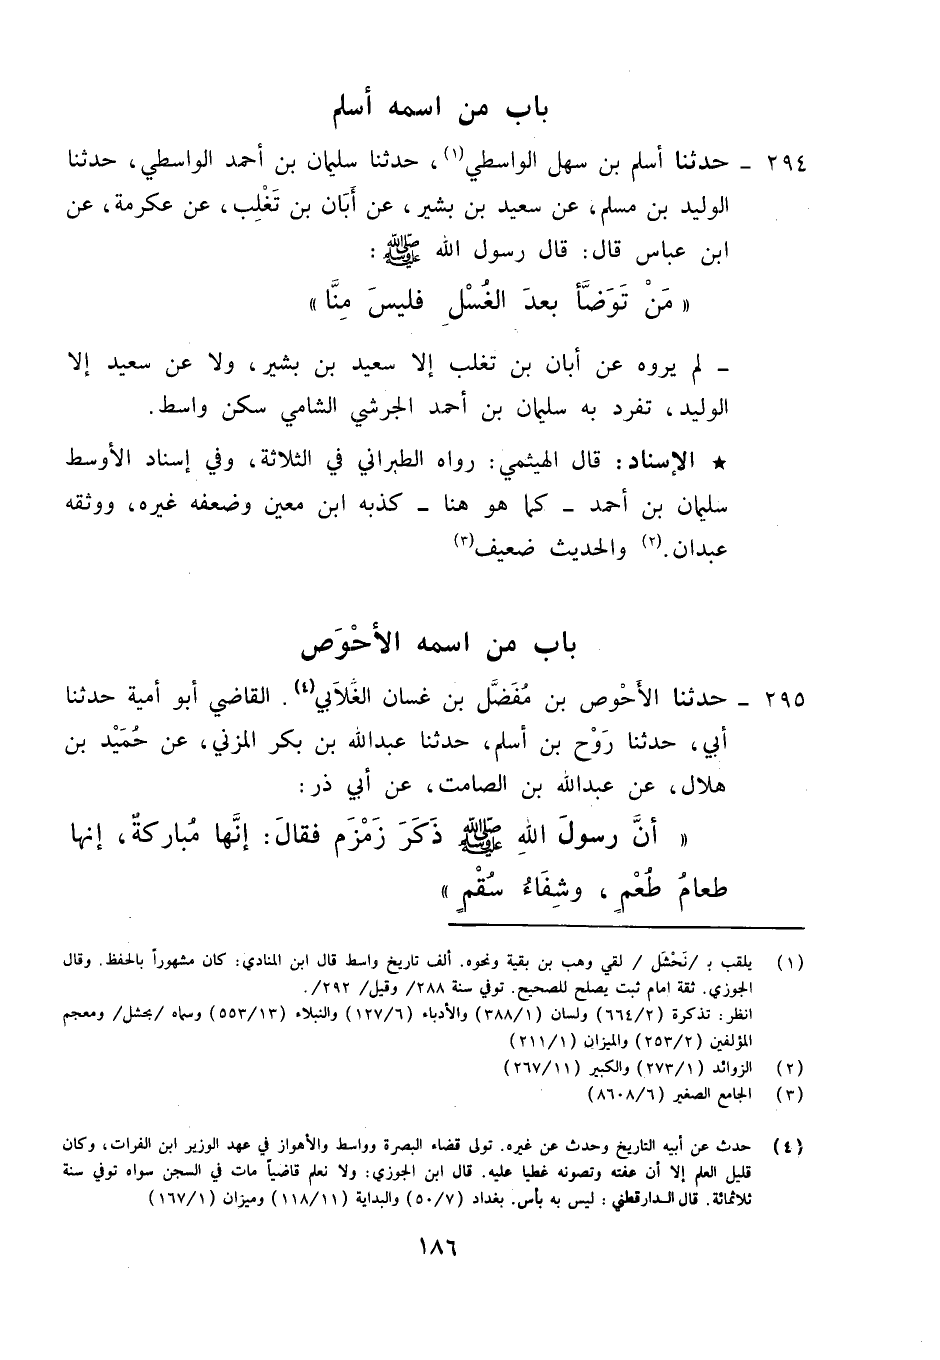 باب من اسمه أسلم
٢٩٤ ـ حدثنا أسلم بن سهل الواسطي(١)، حدثنا سليمان بن أحمد الواسطي، حدثنا
الوليد بن مسلم، عن سعيد بن بشير، عن أَبَان بن تَغْلِب، عن عكرمة، عن
ابن عباس قال: قال رسول الله ﷺ:
« مَنْ تَوَضَّأَ بعدَ الغُسْلِ فليسَ مِنَّا »
ـ لم يروه عن أبان بن تغلب إلا سعيد بن بشير، ولا عن سعيد إلا
الوليد، تفرد به سليمان بن أحمد الجرشي الشامي سكن واسط.
★ الإسناد: قال الهيثمي: رواه الطبراني في الثلاثة، وفي إسناد الأوسط
سليمان بن أحمد ـ كما هو هنا ـ كذبه ابن معين وضعفه غيره، ووثقه
عبدان.(٢) والحديث ضعيف(٣)
باب من اسمه الأحْوَص
٢٩٥ ـ حدثنا الأَحْوص بن مُفَضَّل بن غسان الغَلاَبي(٤). القاضي أبو أمية حدثنا
أبي، حدثنا رَوْح بن أسلم، حدثنا عبدالله بن بكر المزني، عن حُمَيْد بن
هلال، عن عبدالله بن الصامت، عن أبي ذر:
« أنَّ رسولَ اللهِ ﷺ ذَكَرَ زَمْزَم فقالَ: إنَّها مُباركةٌ، إنها
طعامُ طُعْمٍ، وشِفَاءُ سُقْمٍ »
(١) يلقب بـ /نَحْشَل/ لقي وهب بن بقية ونحوه. ألف تاريخ واسط قال ابن المنادي: كان مشهوراً بالحفظ. وقال
الجوزي. ثقة امام ثبت يصلح للصحيح. توفي سنة ٢٨٨/ وقيل/ ٢٩٢/.
انظر: تذكرة (٦٦٤/٢) ولسان (٣٨٨/١) والأدباء (١٢٧/٦) والنبلاء (٥٥٣/١٣) وسماه /بحشل/ ومعجم
المؤلفين (٢٥٣/٢) والميزان (٢١١/١)
(٢) الزوائد (٢٧٣/١) والكبير (٢٦٧/١١)
(٣) الجامع الصغير (٨٦٠٨/٦)
(٤) حدث عن أبيه التاريخ وحدث عن غيره. تولى قضاء البصرة وواسط والأهواز في عهد الوزير ابن الفرات، وكان
قليل العلم إلا أن عفته وتصونه غطيا عليه. قال ابن الجوزي: ولا نعلم قاضياً مات في السجن سواه توفي سنة
ثلاثمائة. قال الدارقطني: ليس به بأس. بغداد (٥٠/٧) والبداية (١١٨/١١) وميزان (١٦٧/١)
١٨٦